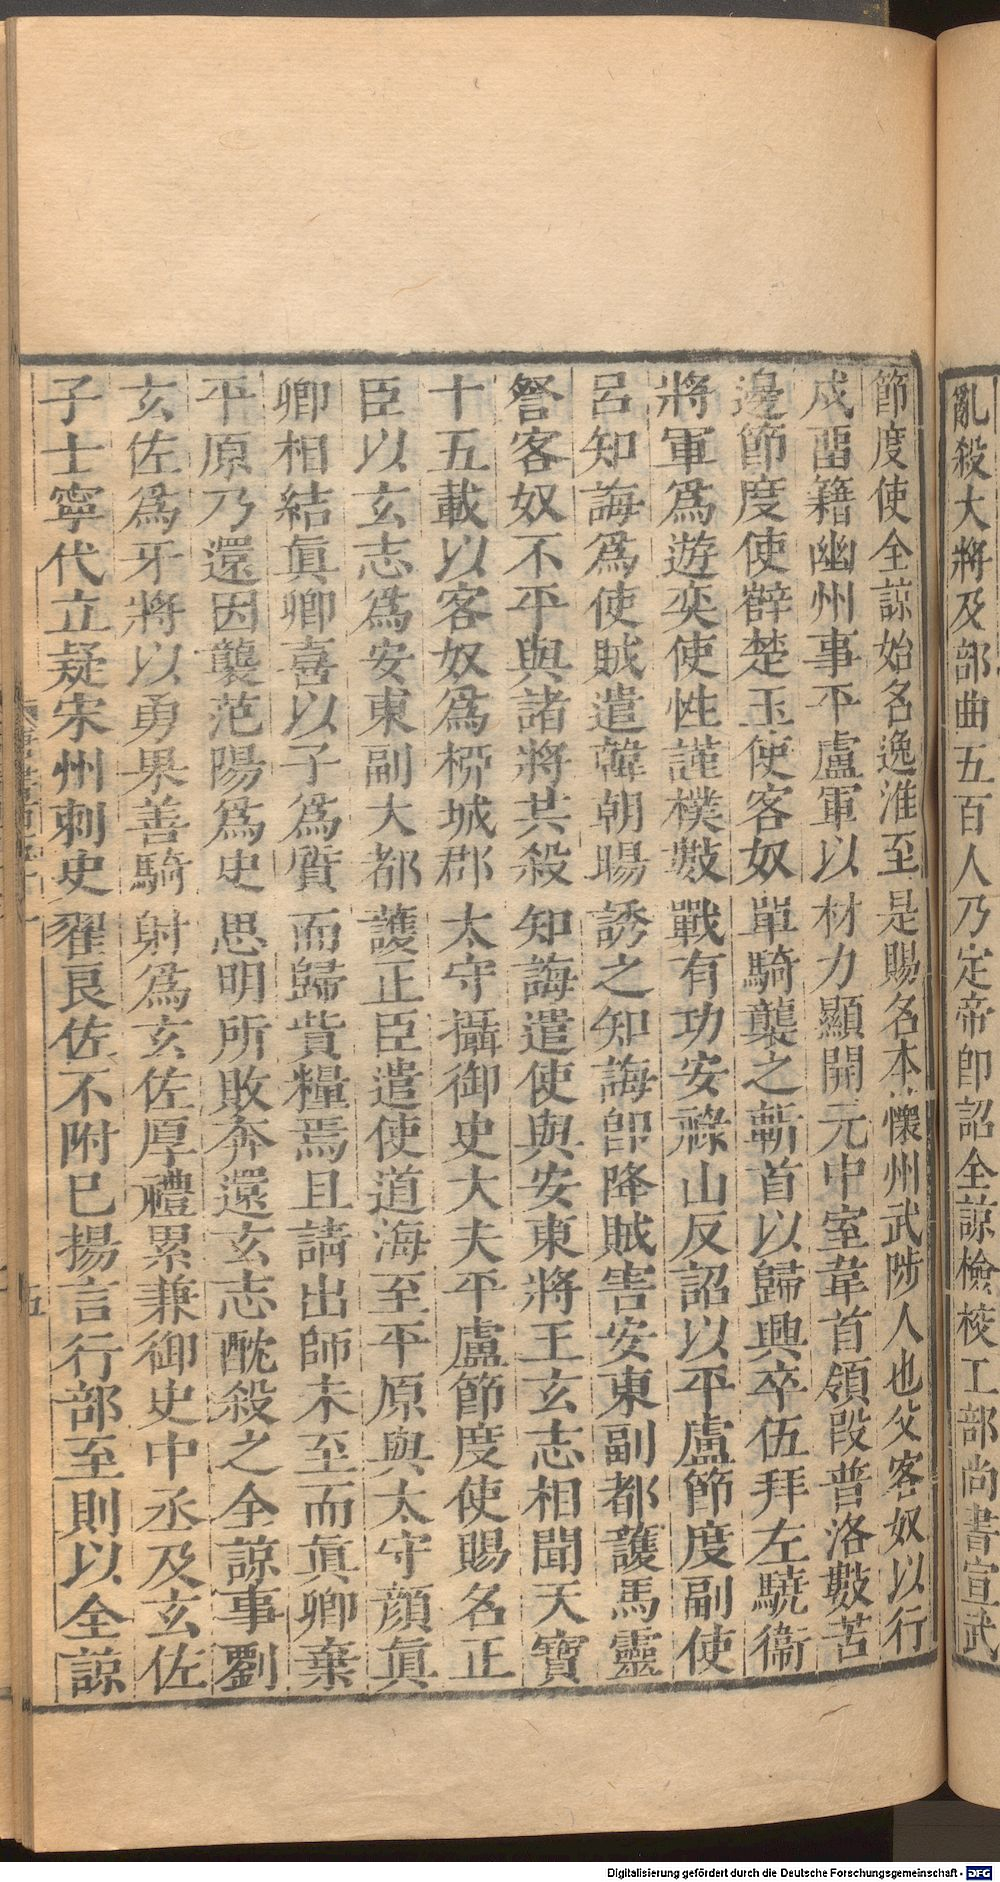 亂殺大將及部曲五百人乃定帝卽詔全諒檢校工部尚書宣武
節度使全諒始名逸淮至是賜名本懷州武陟人也父客奴以行
戍畱籍幽州事平盧軍以材力顯開元中室韋首領段普洛數苦
邊節度使薛楚玉使客奴單騎襲之斬首以歸興卒伍拜左驍衞
將軍爲遊奕使性謹樸數戰有功安祿山反詔以平盧節度副使
呂知誨爲使賊遣韓朝暘誘之知誨卽降賊害安東副都護馬靈
詧客奴不平與諸將共殺知誨遣使與安東將王玄志相聞天寶
十五載以客奴爲栁城郡太守攝御史大夫平盧節度使賜名正
臣以玄志爲安東副大都護正臣遣使道海至平原與太守顏眞
卿相結眞卿喜以子爲質而歸貲糧焉且請出師未至而眞卿棄
平原乃還因襲范陽爲史思明所敗奔還玄志酖殺之全諒事劉
玄佐爲牙將以勇果善騎射爲玄佐厚禮累兼御史中丞及玄佐
子士寧代立疑宋州刺史翟良佐不附已揚言行部至則以全諒
五
Digitalisierung gefördert durch die Deutsche Forschungsgemeinschaft - DFG